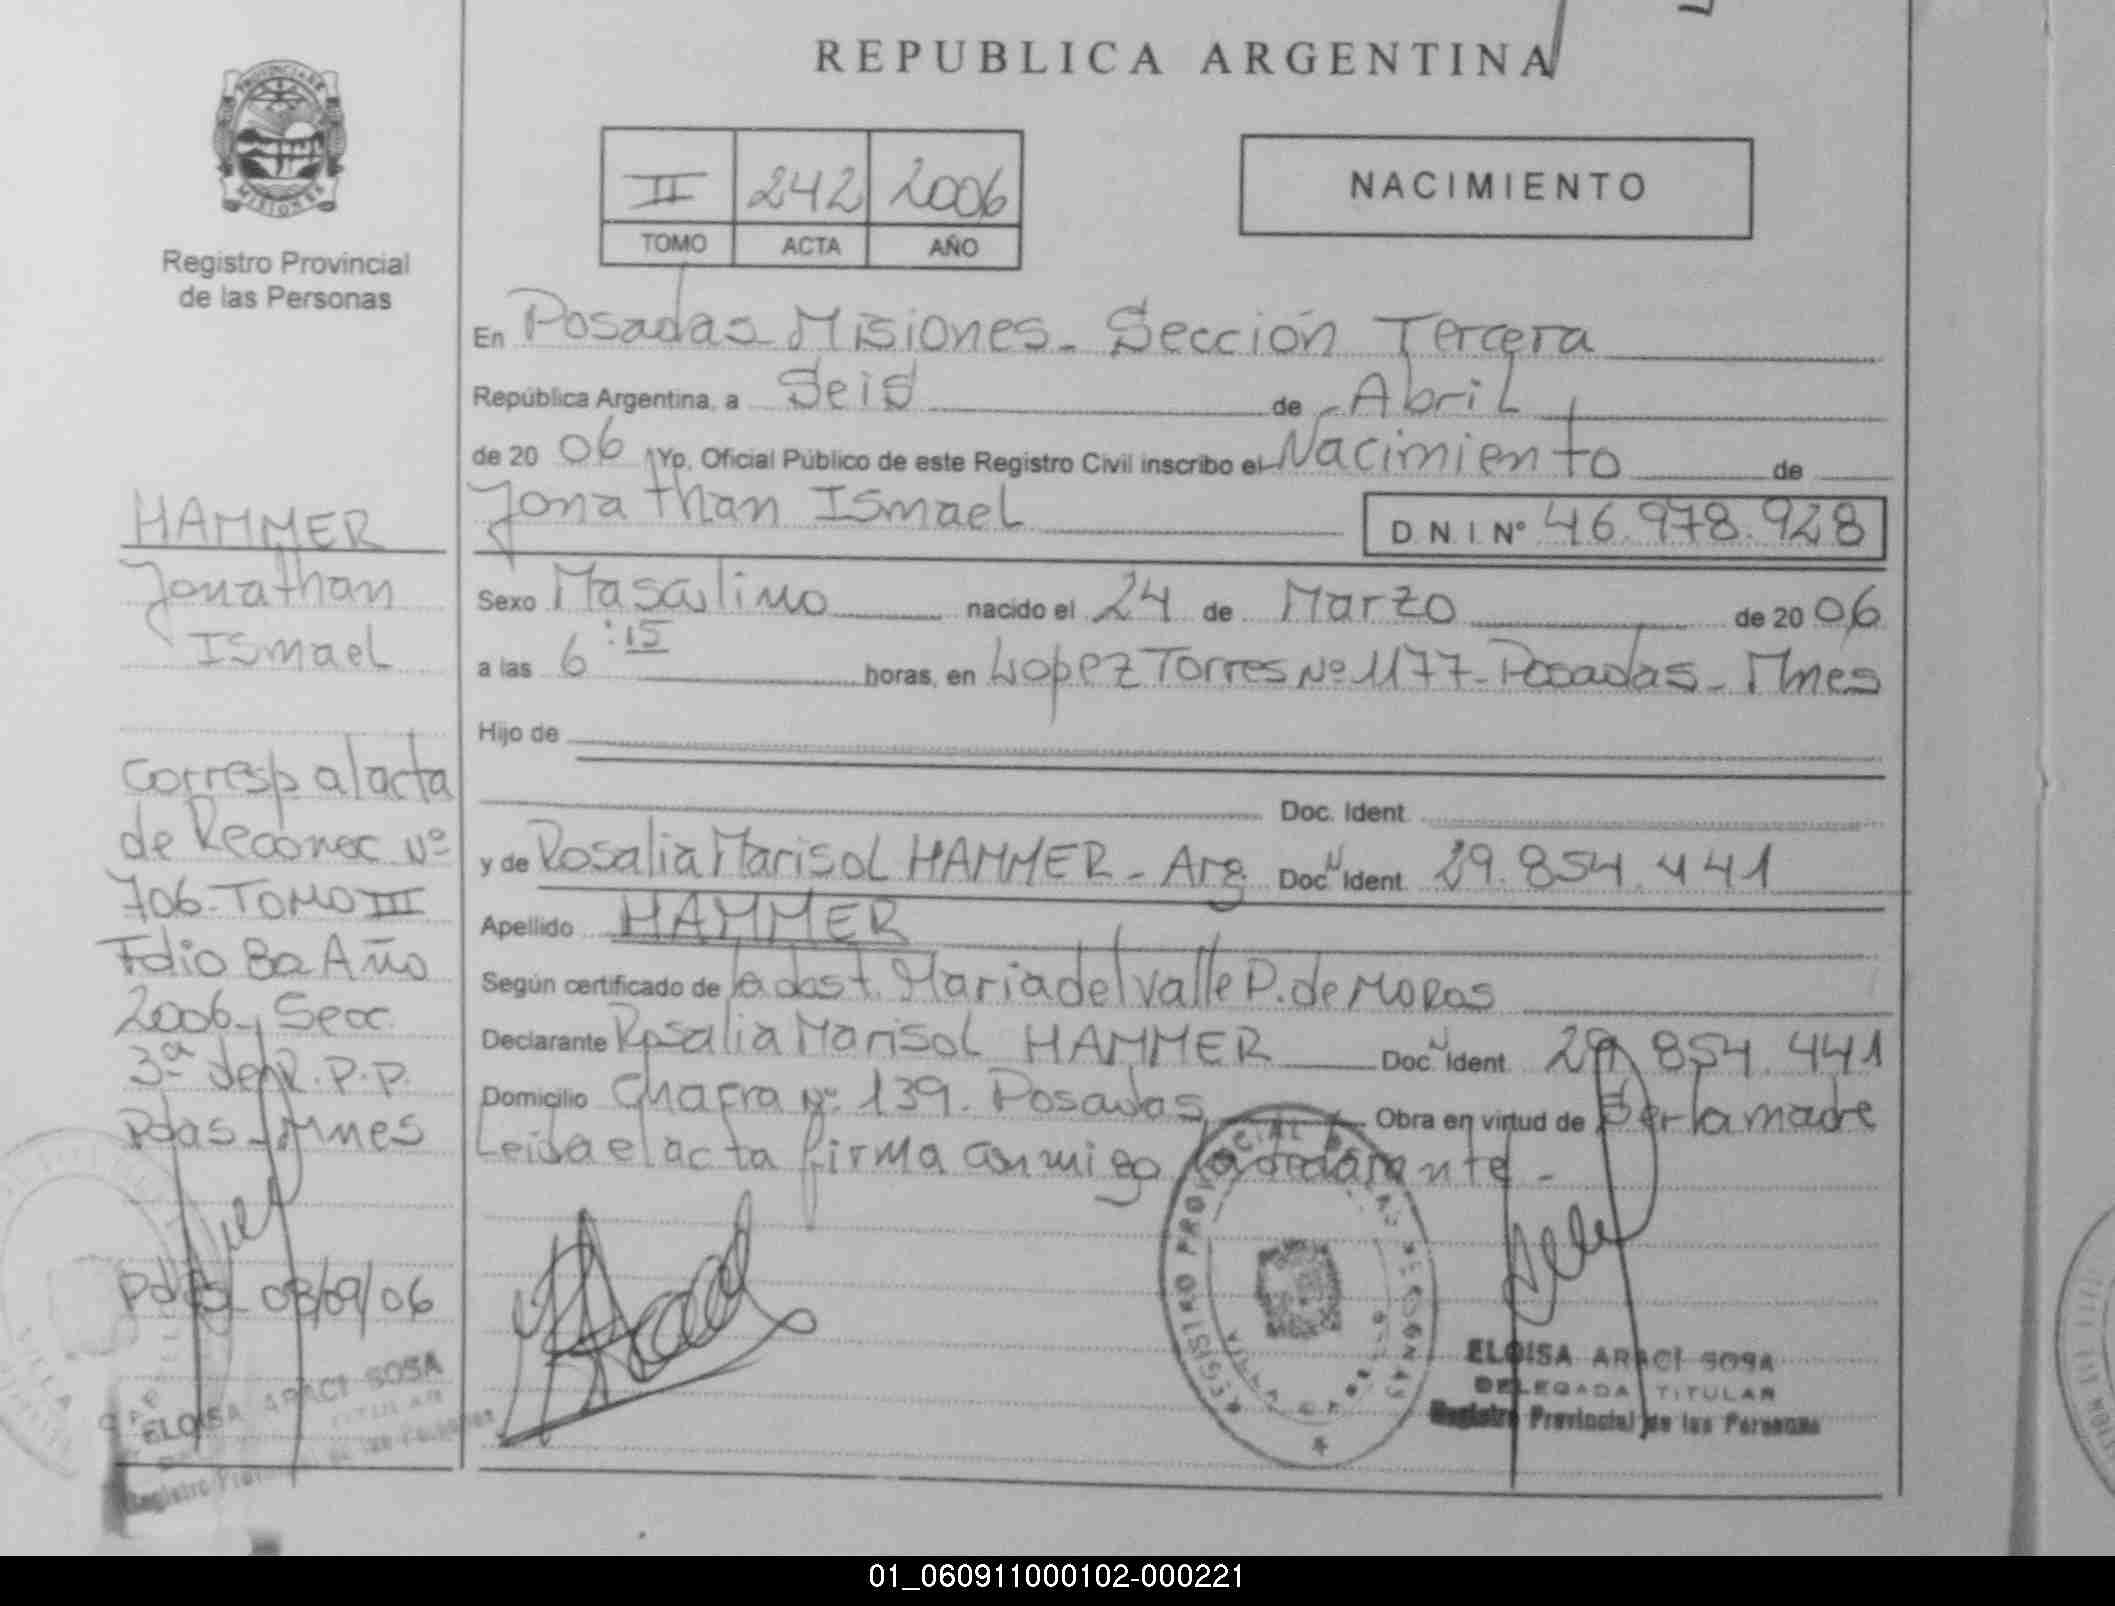 REPUBLICA ARGENTINA
PROVINCIA DE
MISIONES
Registro Provincial
de las Personas
II 242 2006
TOMO ACTA AÑO
NACIMIENTO
En Posadas Misiones - Sección Tercera
República Argentina, a Seis de Abril
de 20 06 Yo, Oficial Público de este Registro Civil inscribo el Nacimiento de
Jonathan Ismael D.N.I. Nº 46.978.928
Sexo Masculino nacido el 24 de Marzo de 20 06
a las 6:15 horas, en Lopez Torres Nº 1177 - Posadas - Mnes
Hijo de
Doc. Ident.
y de Rosalia Marisol HAMMER - Arg. Doc. Ident. 29.854.441
Apellido HAMMER
Según certificado de la obst. Maria del Valle P. de Moras
Declarante Rosalia Marisol HAMMER Doc. Ident. 29.854.441
Domicilio Chacra Nº 139. Posadas Obra en virtud de Ser la madre
Leida el acta firma conmigo la declarante -
ELOISA ARACI SOSA
DELEGADA TITULAR
Registro Provincial de las Personas
HAMMER
Jonathan
Ismael
Corresp al acta
de Reconoc Nº
706 - TOMO III
Folio 82 Año
2006 - Secc.
3ª del R.P.P.
Pdas - Mnes
Pdas 08/09/06
ELOISA ARACI SOSA
TITULAR
Registro Provincial de las Personas
REGISTRO PROVINCIAL
01_060911000102-000221